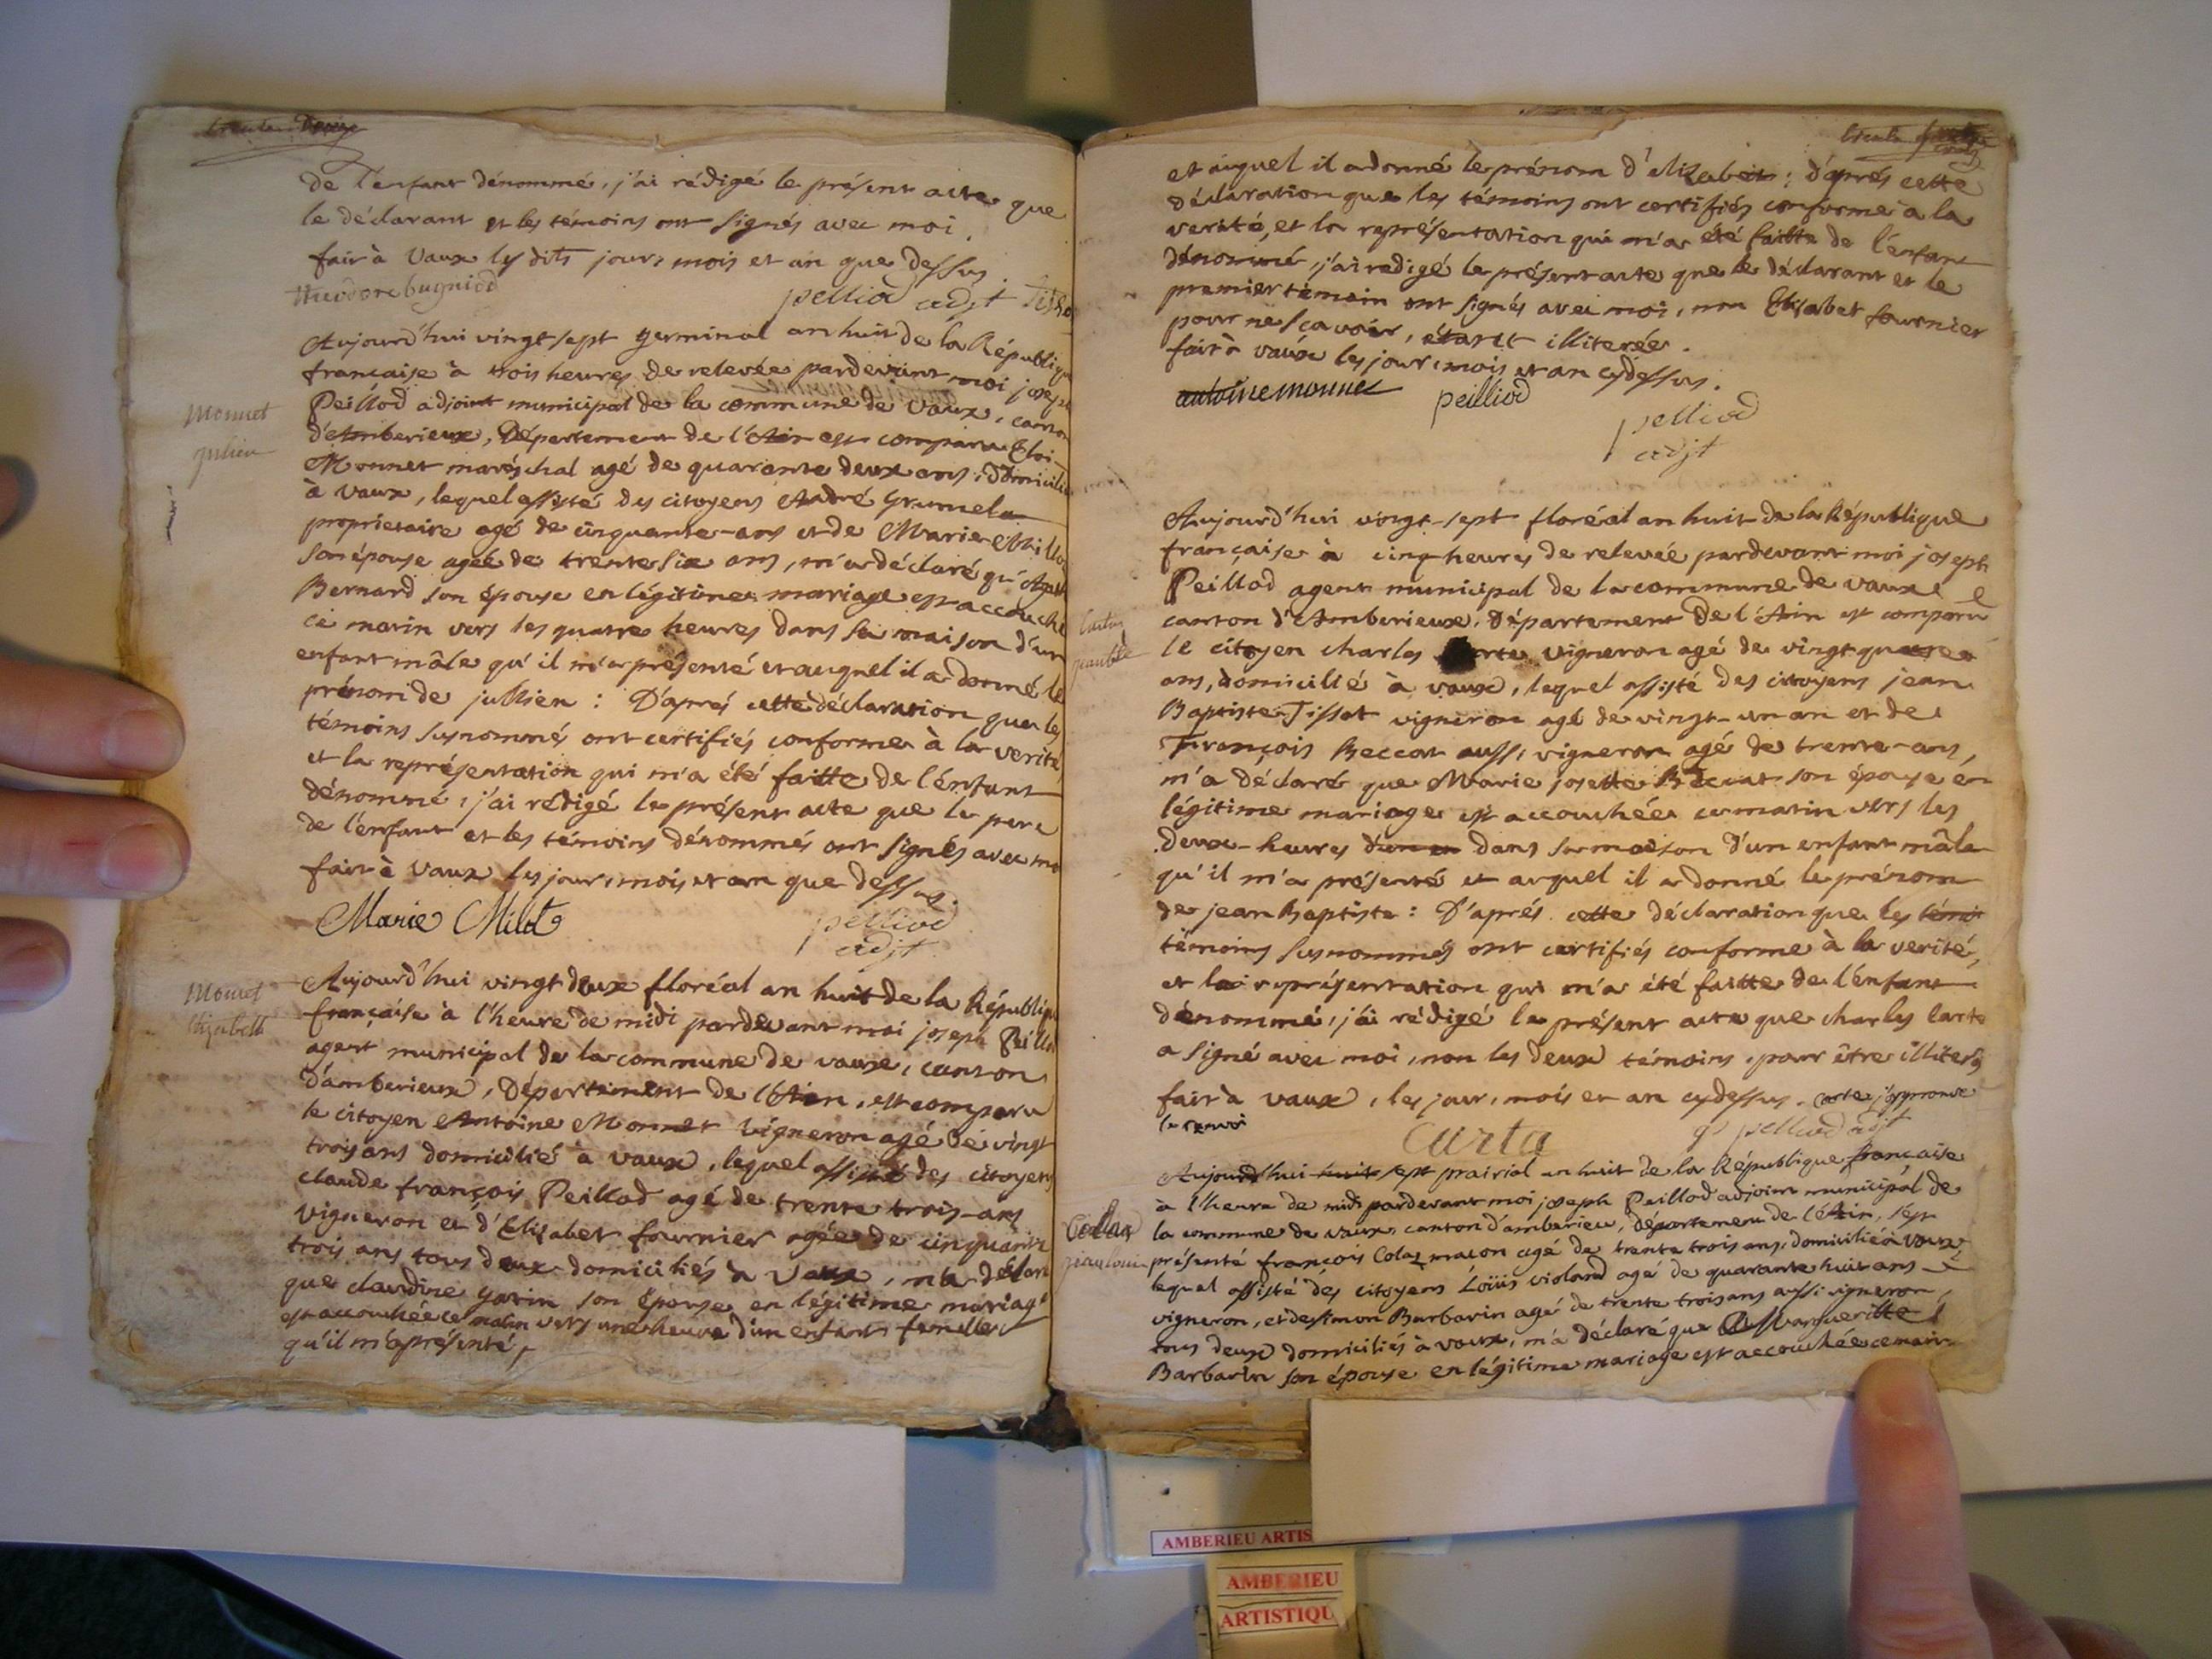 de l'enfant dénommé, j'ai rédigé le présent acte que
le déclarant et les témoins ont signés avec moi.
fait à Vaux les dits jour, mois et an que dessus.
theodore bugniod
pelliod adjt
Aujourd'hui vingt sept germinal an huit de la République
française à trois heures de relevée pardevant moi joseph
Peillod adjoint municipal de la commune de Vaux, canton
d'Amberieux, Département de l'Ain est comparu Eloi
Monnet maréschal agé de quarante deux ans, domicilié
à Vaux, lequel assisté des citoyens André Grumel
proprietaire agé de cinquante-ans et de Marie
son épouse agée de trente six ans, m'a déclaré qu'
Bernard son épouse en légitime mariage est accouché
ce matin vers les quatre heures dans sa maison d'un
enfant mâle qu'il m'a présenté et auquel il a donné le
prénom de jullien : D'aprés cette déclaration que les
témoins susnommés ont certifiés conforme à la verité
et la représentation qui m'a été faitte de l'énfant
dénommé, j'ai rédigé le présent acte que le pere
de l'énfant et les témoins dénommés ont signés avec mo
fait à Vaux les jour, mois et an que dessus.
Marie Milet
pelliod
adjt
Monnet
julien
Aujourd'hui vingt deux floréal an huit de la Républiq
française à l'heure de midi pardevant moi joseph Peillo
agent municipal de la commune de vaux, canton
d'amberieux, Département de l'Ain, est comparu
le citoyen Antoine Monnet vigneron agé de vingt
trois ans domicilié à vaux, lequel assisté des citoyens
claude françois Peillod agé de trente trois-ans
vigneron et d'Elisabet fournier agée de cinquante
trois ans tous deux domiciliés à Vaux, m'a déclaré
que claudine son épouse en légitime mariage
est accouchée ce matin vers une heure d'un enfant femelle
qu'il m'a présenté,
Monet
Elizabeth
et auquel il a donné le prénom d'elizabeth : d'aprés cette
déclaration que les témoins ont certifiés conforme a la
verité, et la représentation qui m'a été faitte de l'énfant
dénommé, j'ai redigé le présent acte que le déclarant et le
premier témoin ont signés avec moi, non Elisabet fournier
pour ne sçavoir, étant illiterée.
fait à vaux les jour, mois et an cydessus.
antoine monnet peilliod
pelliod
adjt
Aujourd'hui vingt-sept floréal an huit de la République
française à cinq heures de relevée pardevant moi joseph
Peillod agent municipal de la commune de vaux
canton d'Amberieux, Département de l'Ain est comparu
le citoyen charles vigneron agé de vingt quatre
ans, domicilié à vaux, lequel assisté des citoyens jean
Baptiste Tissot vigneron agé de vingt-un an et de
François Beccat aussi vigneron agé de trente-ans,
m'a déclaré que Marie josette Beccat son épouse en
légitime mariage est accouchée ce matin vers les
deux-heures dans sa maison d'un enfant mâle
qu'il m'a présenté et auquel il a donné le prénom
de jean Baptiste : D'aprés cette déclaration que les témo
témoins susnommés ont certifiés conforme à la verité,
et la représentation qui m'a été faitte de l'énfant
dénommé, j'ai rédigé le présent acte que charles Carta
a signé avec moi, non les deux témoins, pour être illiterés
fait à vaux, les jour, mois et an cydessus. carta j'approuve
le renvoi
Carta pelliod adjt
Aujourd'hui huit sept prairial an huit de la République française
à l'heure de midi pardevant moi joseph Peillod adjoint municipal de
la commune de vaux, canton d'amberieu, département de l'Ain, s'est
présenté françois Colaz maçon agé de trente trois ans, domicilié à vaux,
lequel assisté des citoyens Loüis violand agé de quarante huit ans
vigneron, et de simon Barbarin agé de trente trois ans aussi vigneron,
tous deux domiciliés à vaux, m'a déclaré que Margueritte
Barbarin son épouse en légitime mariage est accouchée ce matin
Collaz
jean louis
AMBERIEU ARTIS
AMBERIEU
ARTISTIQU